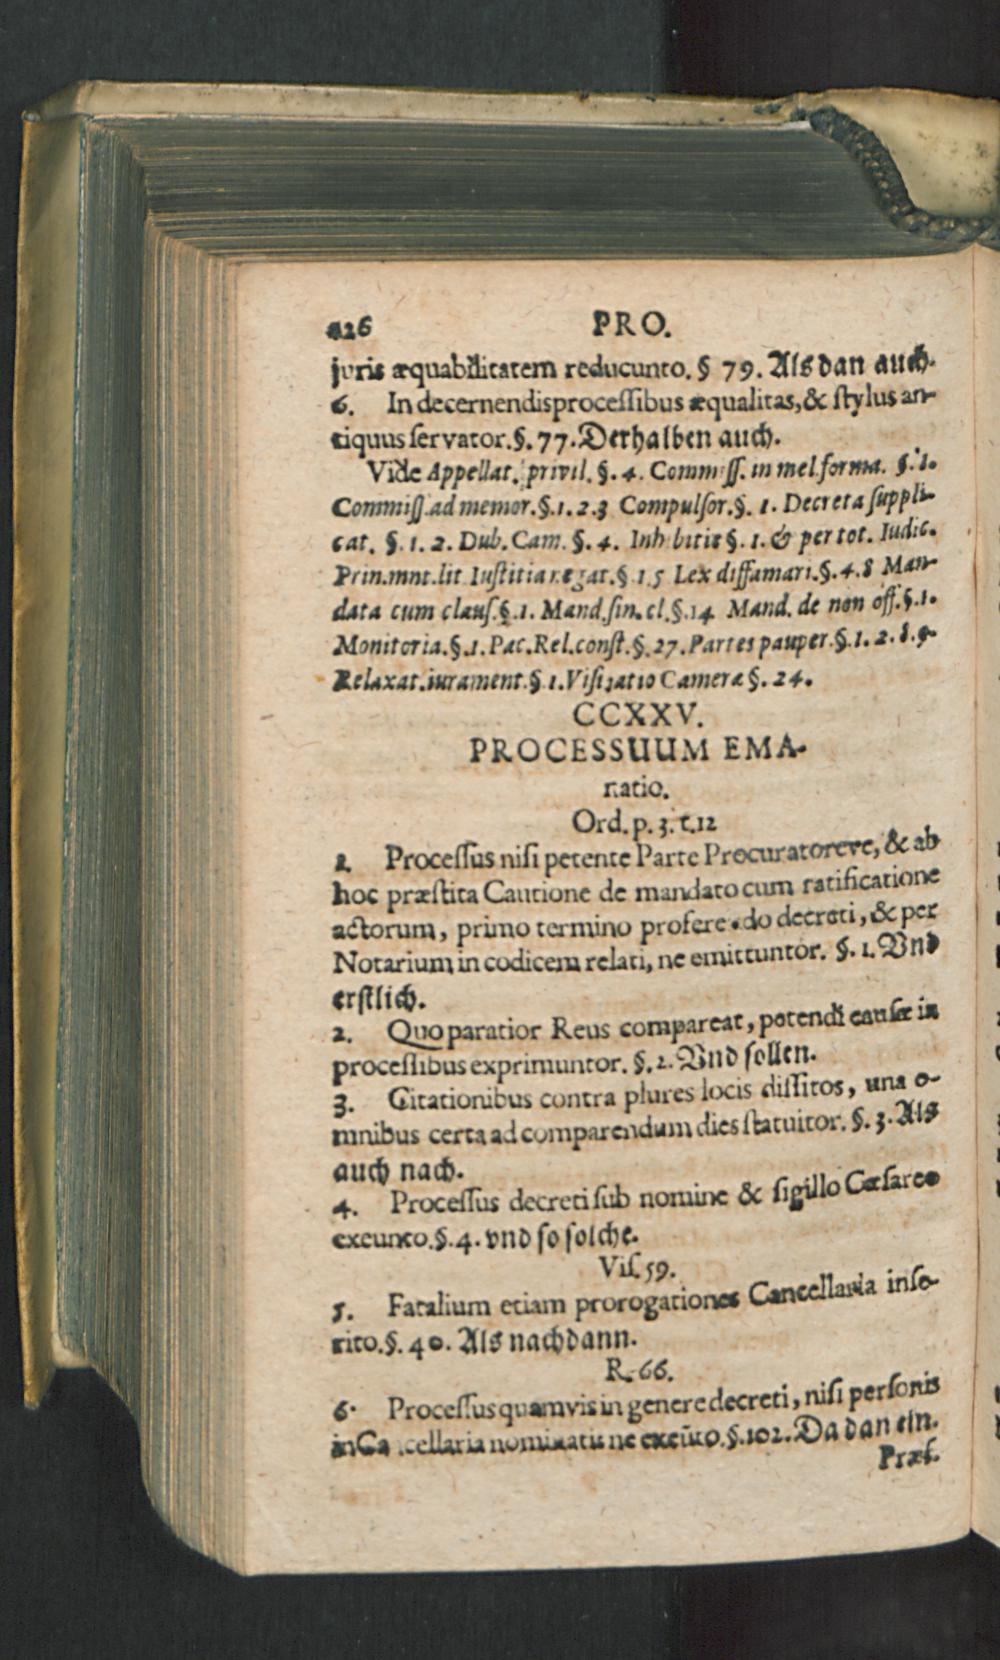 426 PRO.
juris æquabilitatem reducunto. § 79. Als dan auch.
6. In decernendis processibus æqualitas, & stylus an-
tiquus servator. §. 77. Derhalben auch.
Vide Appellat. privil. §. 4. Commiss. in mel. forma. §. 1.
Commiss. ad memor. §. 1. 2. 3 Compulsor. §. 1. Decreta suppli-
cat. §. 1. 2. Dub. Cam. §. 4. Inhibitio §. 1. & per tot. Iudic.
Prin. mnt. lit. Iustitia negat. § 1. 5 Lex diffamari. §. 4. 8 Man-
data cum claus. §. 1. Mand. sin. cl. §. 14 Mand. de non off. §. 1.
Monitoria. §. 1. Pac. Rel. const. §. 27. Partes pauper. §. 1. 2. 8. 9.
Relaxat. iurament. § 1. Visitatio Cameræ §. 24.
CCXXV.
PROCESSUUM EMA-
natio.
Ord. p. 3. t. 12
1. Processus nisi petente Parte Procuratoreve, & ab
hoc præstita Cautione de mandato cum ratificatione
actorum, primo termino proferendo decreti, & per
Notarium in codicem relati, ne emittuntor. §. 1. Vnd
erstlich.
2. Quo paratior Reus compareat, petendi causæ in
processibus exprimuntor. §. 2. Vnd sollen.
3. Citationibus contra plures locis dissitos, una o-
mnibus certa ad comparendum dies statuitor. §. 3. Als
auch nach.
4. Processus decreti sub nomine & sigillo Cæsareo
exeunto. §. 4. vnd so solche.
Vis. 59.
5. Fatalium etiam prorogationes Cancellaria inse-
rito. §. 40. Als nach dann.
R. 66.
6. Processus quamvis in genere decreti, nisi personis
in Cancellaria nominatis ne exeũto. §. 102. Da dan ein.
Præs.